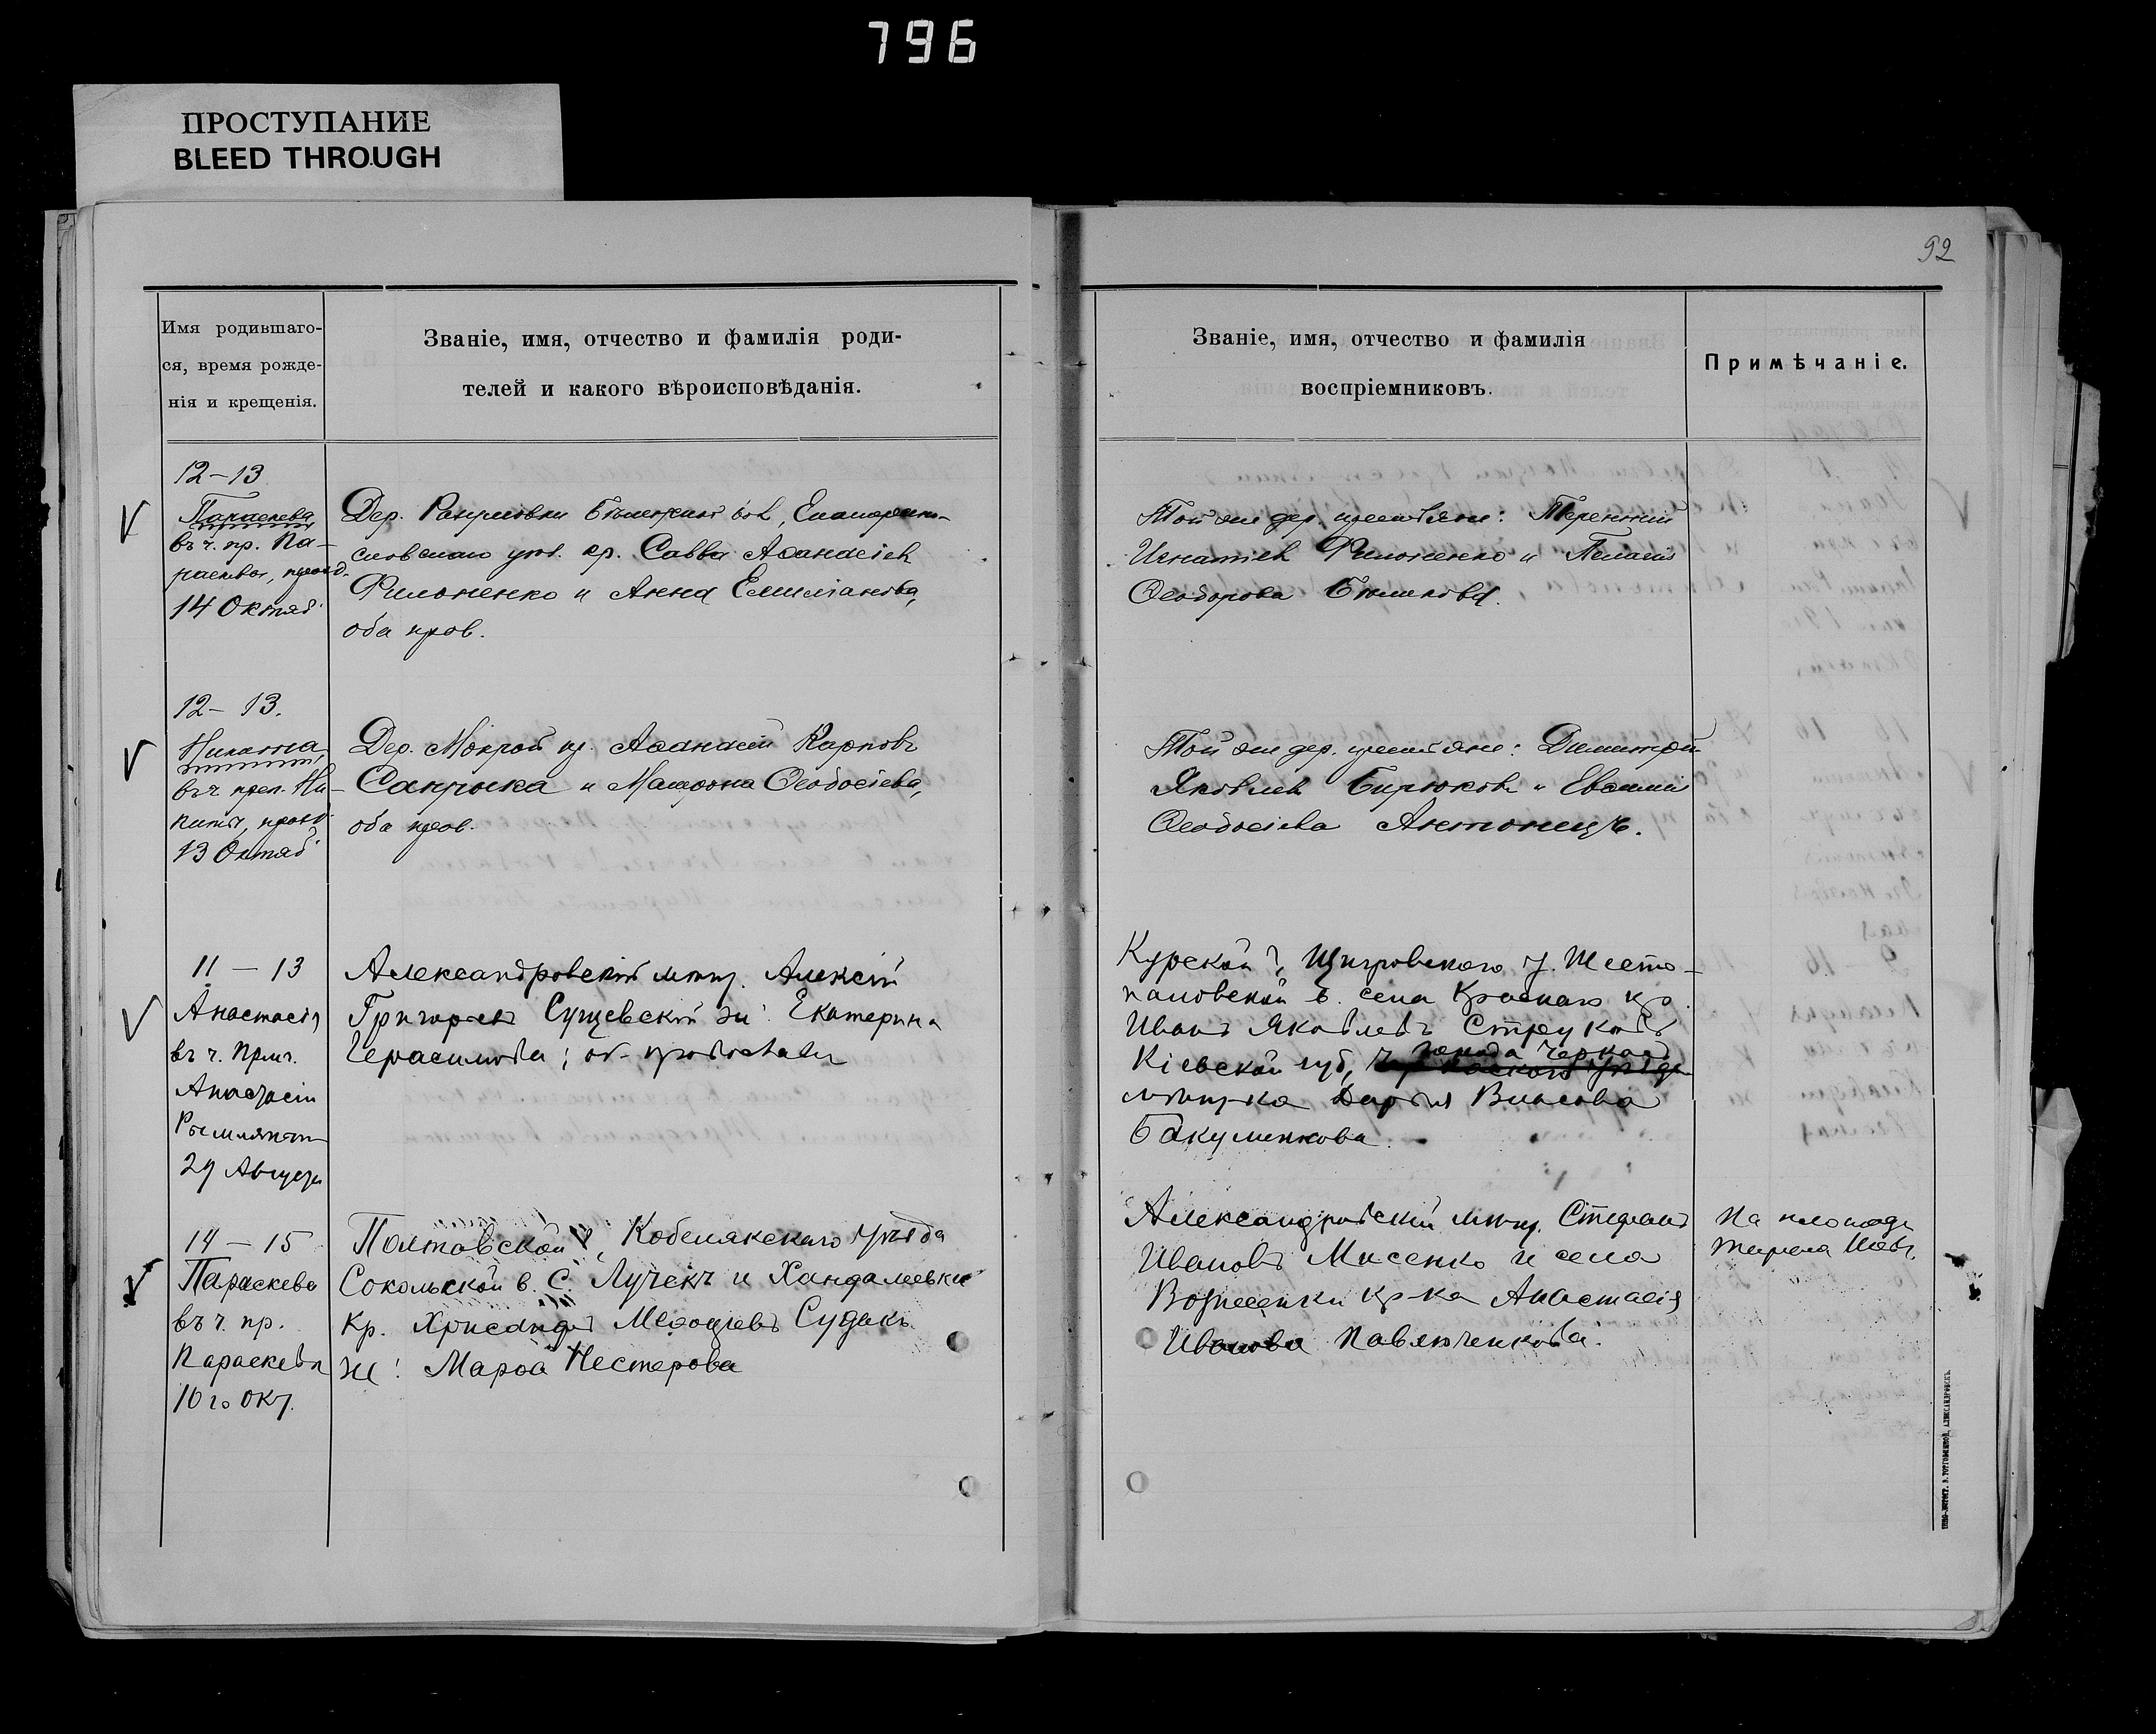 796
ПРОСТУПАНИЕ
BLEED THROUGH
92
Имя родившаго-
ся, время рожде-
нія и крещенія.
Званіе, имя, отчество и фамилія роди-
телей и какого вѣроисповѣданія.
Званіе, имя, отчество и фамилія
воспріемниковъ.
Примѣчаніе.
12-13
Параскева
въ ч. пр. Па-
раскевы,
14 Октяб
Дер.
уѣз. кр. Савва Аѳанасіевъ
Филоненко и Анна Емиліанова,
оба прав.
Той же дер. крестьяне: Терентій
Игнатіевъ Филоненко и Пелагія
Ѳеодорова
12-13.
Никита,
въ ч. преп. Ни-
киты,
13 Октяб
Дер. Мокрой кр. Аѳанасій Карповъ
и Матрона Ѳеодосіева,
оба прав.
Той же дер. крестьяне: Димитрій
Яковлевъ Бирюковъ и Евѳимія
Ѳеодосіева Антонецъ.
11-13
Анастасія
въ ч. прмч.
Анастасіи
Римляныни
29 Августа
Александровскій мѣщ. Алексій
Григорьевъ Сущевскій ж: Екатерина
Герасимова; об. православн
Курской г, Щигровскаго у. Шесто-
паловской в. села Краснаго кр.
Иванъ Яковлевъ Струковъ
Кіевской губ, города Черкасъ
мѣщ-ка Дарья Власова
Бакуменкова.
14-15
Параскева
въ ч. пр.
Параскевы
10го Окт.
Полтавской г, Кобелякскаго уѣзда
Сокольской в. С. Лучекъ и Хандалеевки
Кр. Хрисанфъ Меѳодіевъ Судакъ
ж: Марѳа Нестерова
Александровскій мѣщ. Стефанъ
Ивановъ Мисенко и села
Вознесенки кр-ка Анастасія
Иванова Павлюченкова.
На площади